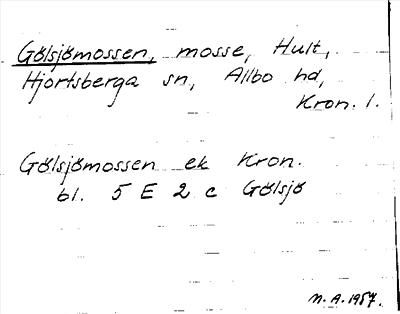 Gölsjömossen, mosse, Hult,
Hjortsberga sn, Allbo hd,
Kron. l.
Gölsjömossen ek Kron.
bl. 5 E 2 c Gölsjö
N.A. 1957.